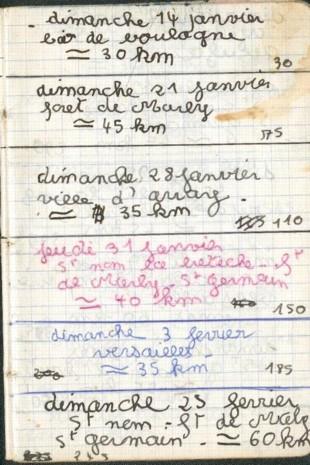 dimanche 14 janvier
bois de boulogne
≃ 30 km
30
dimanche 21 janvier
foret de Marly
≃ 45 km
75
dimanche 28 janvier
ville d'avray.
≃ 35 km
110
jeudi 31 janvier
St nom la breteche - ft
de Marly - St germain
≃ 40 km
150
dimanche 3 fevrier
versailles -
≃ 35 km
185
dimanche 25 fevrier
St nom - ft de Marly
St germain - ≃ 60 km